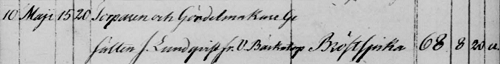 10 Maji 1520 Torparen och Gördelmakare Ge
sällen J. Lundqvist fr. V. Backstop Bröstsjuka 68 8 20 u.